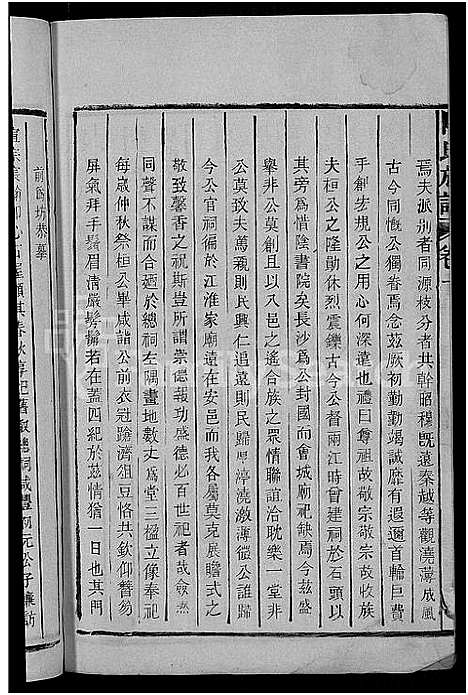 焉夫派别者同源枝分者共幹昭穆既遠秦越等觀澆薄成風
古今同慨公獨眷焉念茲厥初勤勤竭誠靡有遐邇首輸巨費
手創宏規公之用心何深遠也禮曰尊祖故敬宗敬宗故收族
夫桓公之隆勛休烈震鑠古今公督兩江時曾建祠於石頭以
其旁爲惜陰書院矣長沙爲公封國而會城廟祀缺焉今茲盛
舉非公莫創且以邑之遙合族之眾情聯誼洽耽樂一堂非
公莫致夫萬親則民興仁追遠則民歸厚渟澆激薄微公誰歸
今公官祠徧於江淮家廟邇在安邑而我各屬莫克展瞻式之
敬致馨香之祝斯豈所謂崇德報功盛德必百世祀者敬僉議
同聲不謀而合於總祠左隅畫地數丈爲堂三楹立像奉祀
每歲仲秋祭桓公畢咸詣公前衣冠蹌濟俎豆恪共欽仰誉
屏氣拜手鬚眉清嚴髣髴若在蓋四紀於茲情猶一日也其門
前爲坊恭摹